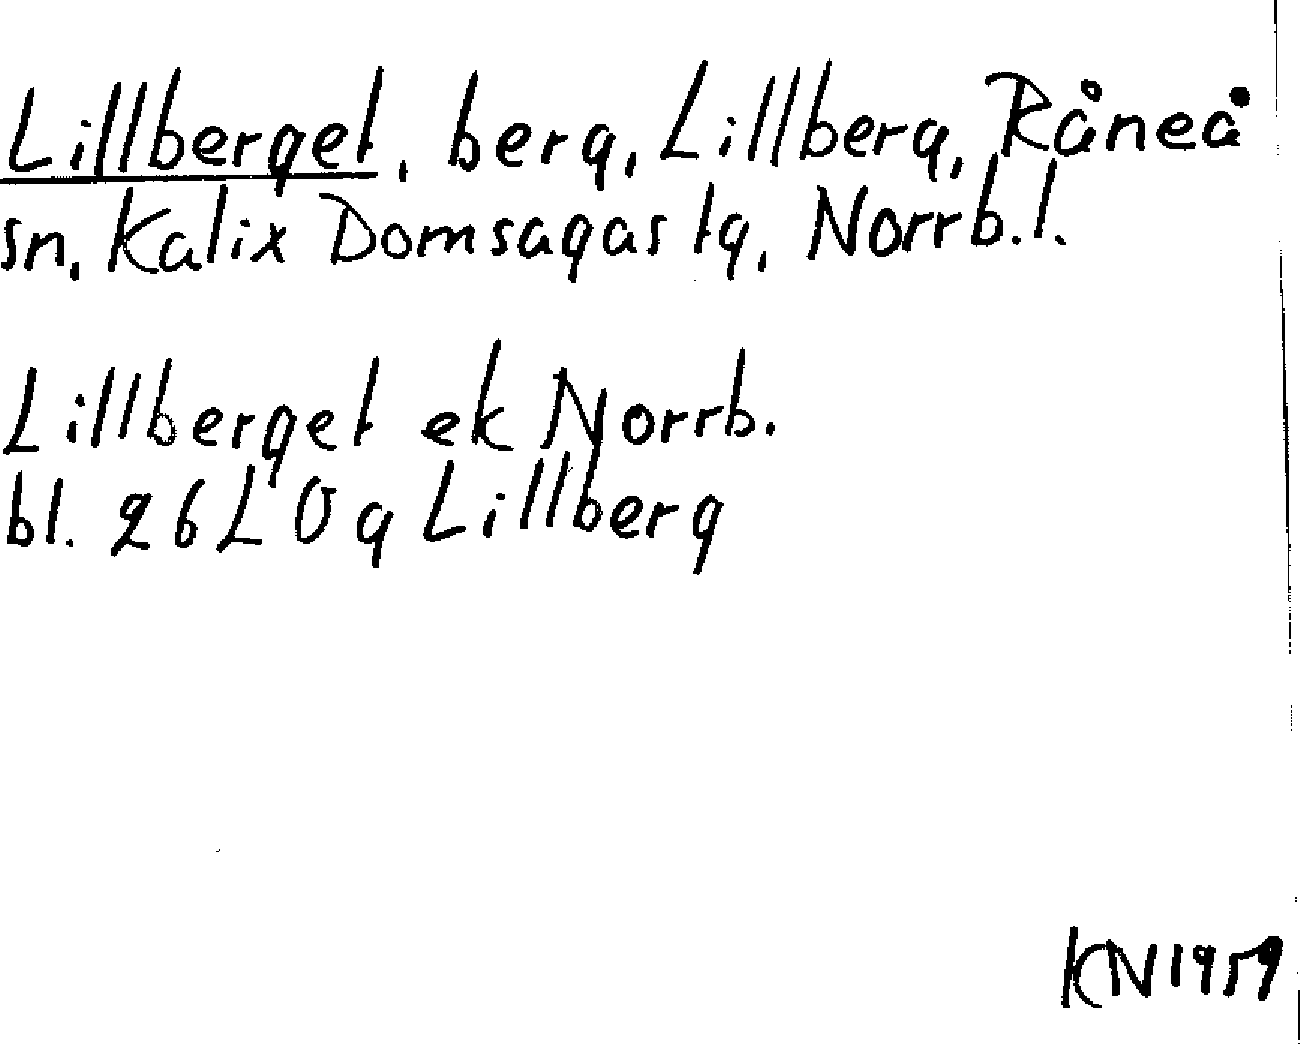 Lillberget, berg, Lillberg, Råneå
sn, Kalix Domsagas tg, Norrb.l.
Lillberget ek Norrb.
bl. 26 L 0 g Lillberg
KN 1959